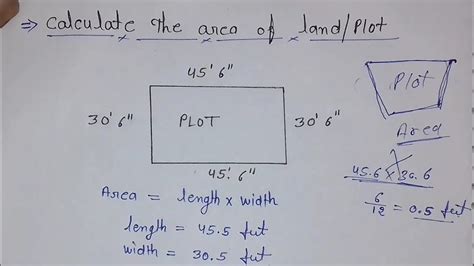 ⇒ Calculate the area of land/Plot
45' 6"
30' 6"
PLOT
30' 6"
45' 6"
Area = length x width
length = 45.5 feet
width = 30.5 feet
Plot
Area
45.6 x 30.6
6/12 = 0.5 feet